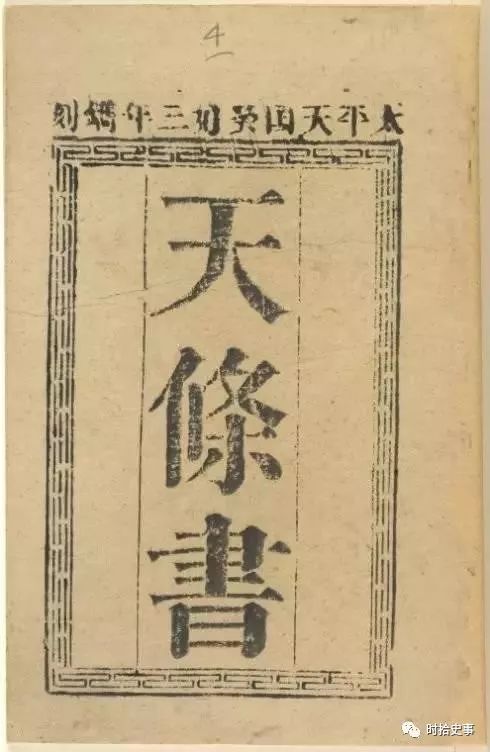 4
太平天囯癸好三年鐫刻
天條書
时拾史事